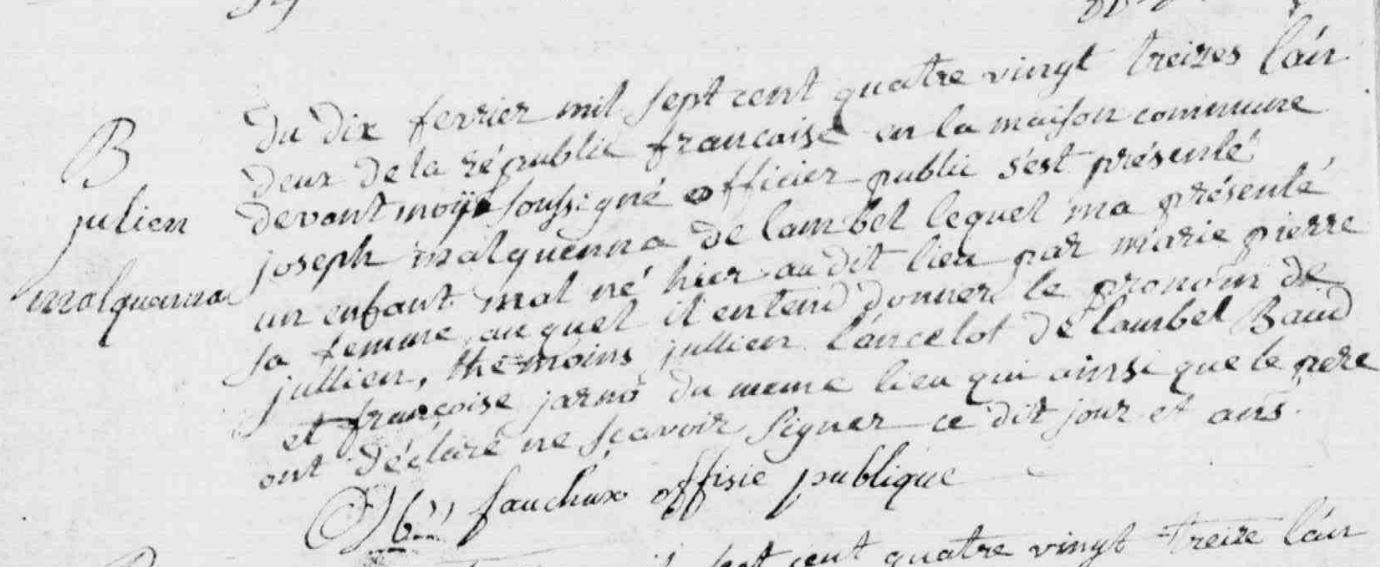 B
julien
malquenna
Du dix fevrier mil sept cent quatre vingt treizes l'an
deux de la république francaise en la maison commune
devant moy soussigné officier public s'est présenté
joseph malquenna de lambel lequel ma présenté
un enfant mal né hier au dit lieu par marie pierre
sa femme, auquel il entend donner le pronom de
jullien, thémoins jullien lancelot de lambel Baud
et françoise jarno du meme lieu qui ainsi que le pere
ont déclaré ne sçavoir signer ce dit jour et ans
fauchux offisie publique
sept cent quatre vingt treize l'an